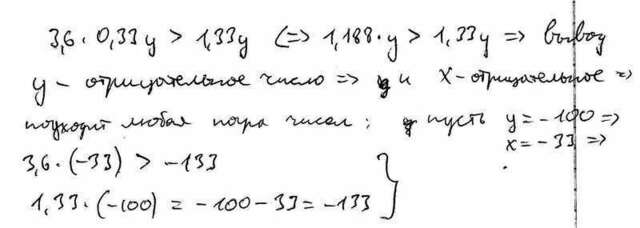 3,6 · 0,33y > 1,33y (=> 1,188·y > 1.33y => вывод
y – отрицательное число => и x – отрицательное =>
подходит любая пара чисел; пусть y = -100 =>
x = -33 =>
3,6 · (-33) > -133
1,33 · (-100) = -100 - 33 = -133